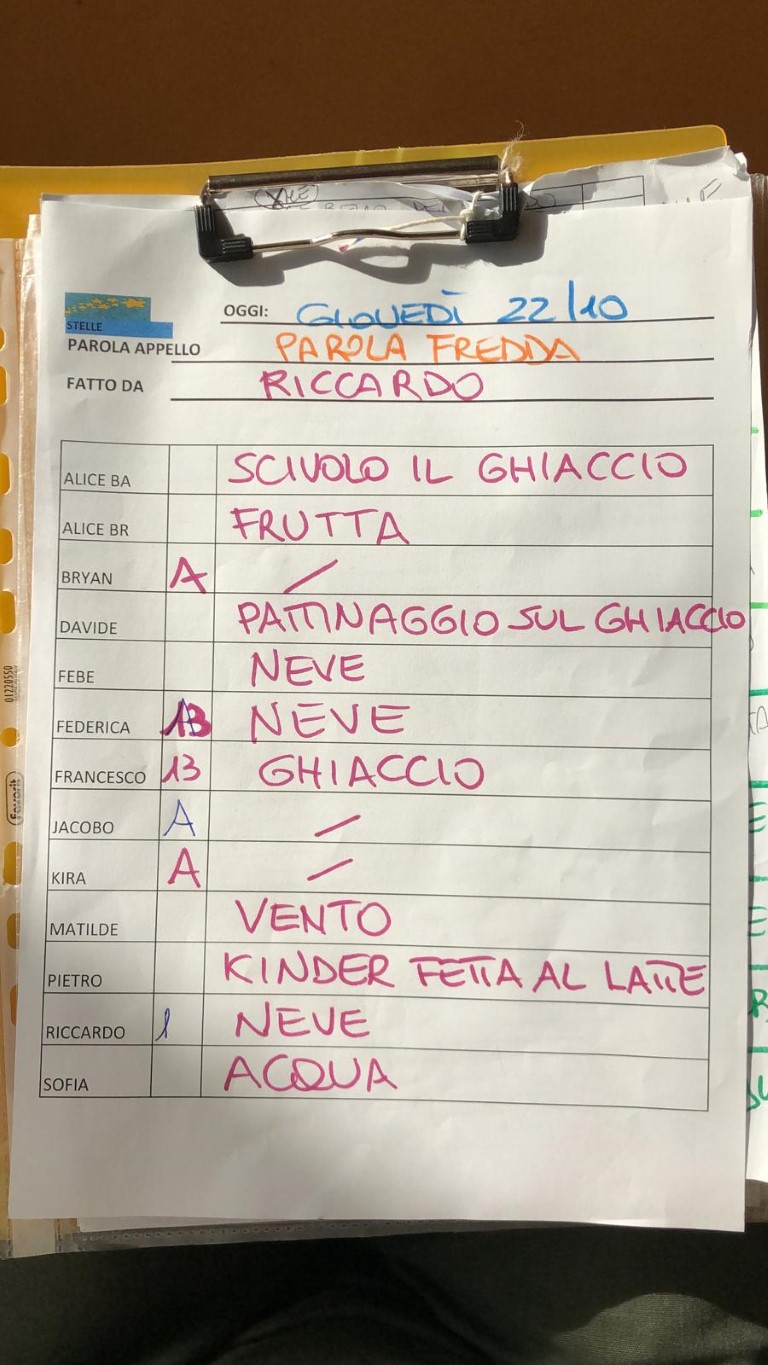 STELLE
OGGI: GIOVEDÌ 22/10
PAROLA APPELLO PAROLA FREDDA
FATTO DA RICCARDO
ALICE BA SCIVOLO IL GHIACCIO
ALICE BR FRUTTA
BRYAN A /
DAVIDE PATTINAGGIO SUL GHIACCIO
FEBE NEVE
FEDERICA NEVE
FRANCESCO 13 GHIACCIO
JACOBO A /
KIRA A /
MATILDE VENTO
PIETRO KINDER FETTA AL LATTE
RICCARDO NEVE
SOFIA ACQUA
01220550
Favorit